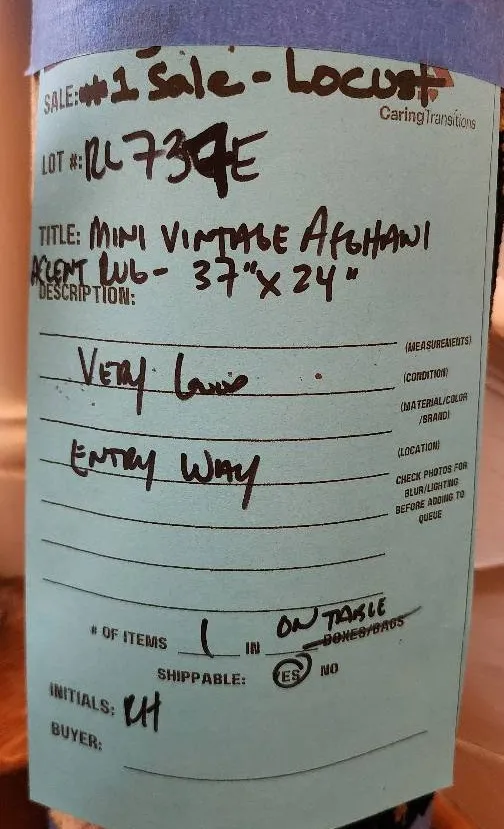 SALE: #1 Sale - Locust
CaringTransitions
LOT #: RL737E
TITLE: MINI VINTAGE AFGHANI
ACCENT RUG - 37" x 24"
DESCRIPTION:
(MEASUREMENTS)
VERY GOOD
(CONDITION)
(MATERIAL/COLOR
/BRAND)
ENTRY WAY
(LOCATION)
CHECK PHOTOS FOR
BLUR/LIGHTING
BEFORE ADDING TO
QUEUE
# OF ITEMS 1 IN ON TABLE
BOXES/BAGS
SHIPPABLE: YES NO
INITIALS: RH
BUYER: